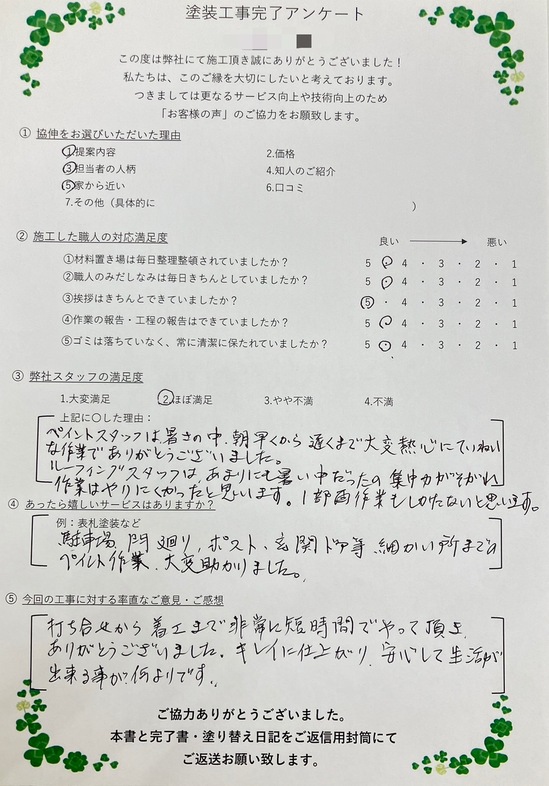 塗装工事完了アンケート
この度は弊社にて施工頂き誠にありがとうございました！
私たちは、このご縁を大切にしたいと考えております。
つきましては更なるサービス向上や技術向上のため
「お客様の声」のご協力をお願致します。
① 協伸をお選びいただいた理由
1.提案内容 2.価格
3.担当者の人柄 4.知人のご紹介
5.家から近い 6.口コミ
7.その他（具体的に ）
② 施工した職人の対応満足度 良い 悪い
①材料置き場は毎日整理整頓されていましたか？ 5 ・ 4 ・ 3 ・ 2 ・ 1
②職人のみだしなみは毎日きちんとしていましたか？ 5 ・ 4 ・ 3 ・ 2 ・ 1
③挨拶はきちんとできていましたか？ 5 ・ 4 ・ 3 ・ 2 ・ 1
④作業の報告・工程の報告はできていましたか？ 5 ・ 4 ・ 3 ・ 2 ・ 1
⑤ゴミは落ちていなく、常に清潔に保たれていましたか？ 5 ・ 4 ・ 3 ・ 2 ・ 1
③ 弊社スタッフの満足度
1.大変満足 2.ほぼ満足 3.やや不満 4.不満
上記に○した理由：
ペイントスタッフは、暑さの中、朝早くから遅くまで大変熱心にていねい
な作業でありがとうございました。
ルーフィングスタッフは、あまりにも暑い中だったの集中力がそがれ
作業はやりにくかったと思います。1部雨作業もしかたないと思います。
④ あったら嬉しいサービスはありますか？
例：表札塗装など
駐車場、門廻り、ポスト、玄関ドア等 細かい所までの
ペイント作業、大変助かりました。
⑤ 今回の工事に対する率直なご意見・ご感想
打ち合せから着工まで非常に短時間でやって頂き
ありがとうございました。キレイに仕上がり、安心して生活が
出来る事が何よりです。
ご協力ありがとうございました。
本書と完了書・塗り替え日記をご返信用封筒にて
ご返送お願い致します。